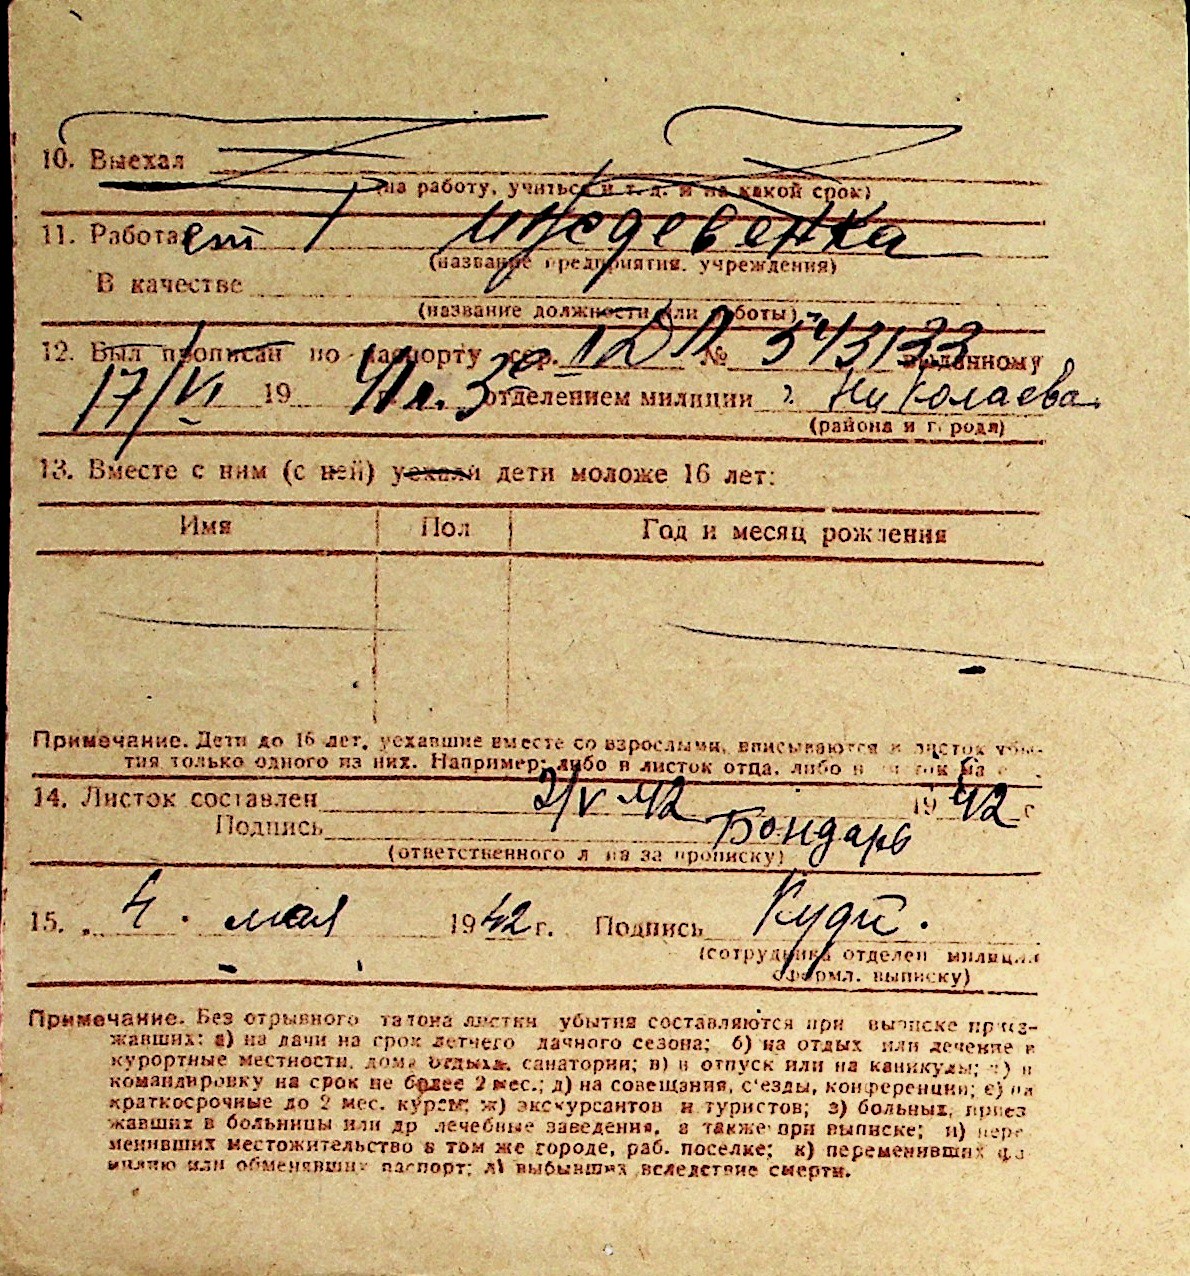 10. Выехал
(на работу, учиться и т. д. и на какой срок)
11. Работает иждевенка
(название предприятия, учреждения)
В качестве
(название должности или работы)
12. Был прописан по паспорту сер. № 543133 выданному
17/VI 1941 г. 3 отделением милиции г. Николаева
(района и города)
13. Вместе с ним (с ней) уехали дети моложе 16 лет:
Имя Пол Год и месяц рождения
Примечание. Дети до 16 лет, уехавшие вместе со взрослыми, вписываются в листок убы-
тия только одного из них. Например: либо в листок отца, либо в
14. Листок составлен 2/V 42 1942 г
Подпись Бондарь
(ответственного лица за прописку)
15. „ 4. мая 1942 г. Подпись
(сотрудника отделен милиции
оформл. выписку)
Примечание. Без отрывного талона листки убытия составляются при выписке приез-
жавших: а) на дачи на срок летнего дачного сезона; б) на отдых или лечение в
курортные местности, дома отдыха, санатории; в) в отпуск или на каникулы; г) в
командировку на срок не более 2 мес.; д) на совещания, с'езды, конференции; е) на
краткосрочные до 2 мес. курсы; ж) экскурсантов и туристов; з) больных, приез
жавших в больницы или др лечебные заведения, а также при выписке; и) пере
менивших местожительство в том же городе, раб. поселке; к) переменивших фа
милию или обменявших паспорт; л) выбывших вследствие смерти.